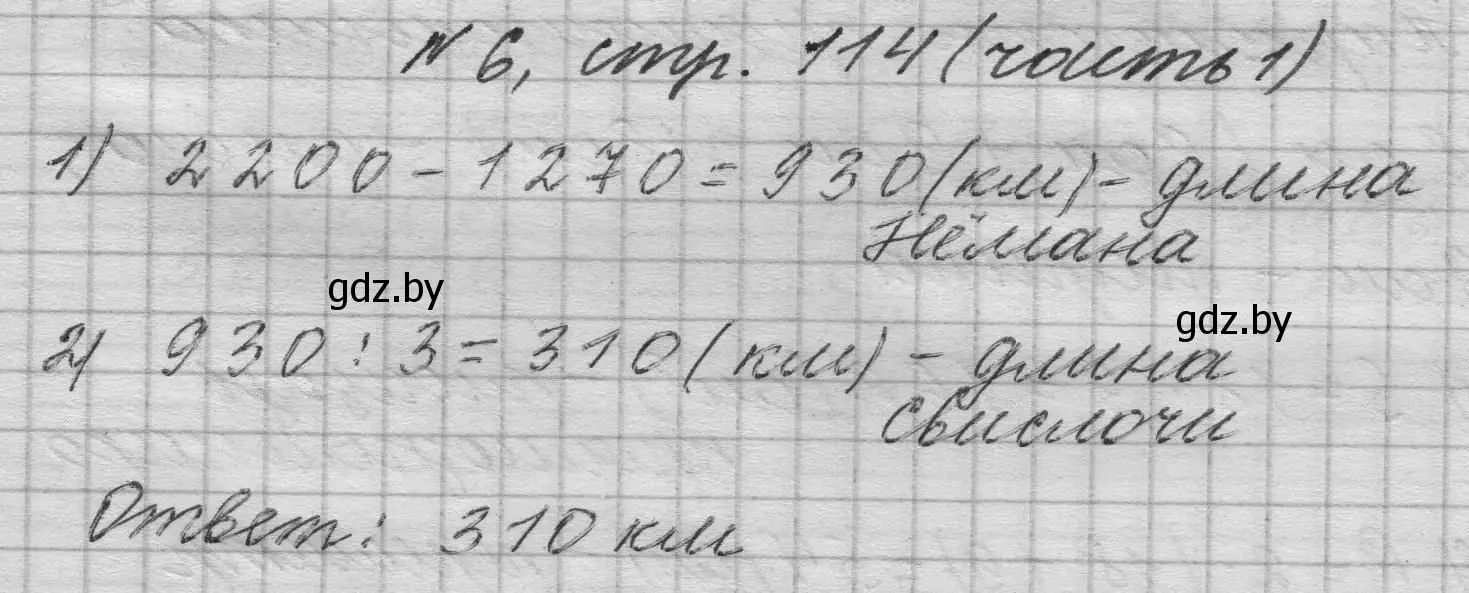 № 6, стр. 114 (часть 1)
1) 2200 - 1270 = 930 (км) - длина
Нёмана
gdz.by
gdz.by
2) 930 : 3 = 310 (км) - длина
Свислочи
Ответ: 310 км